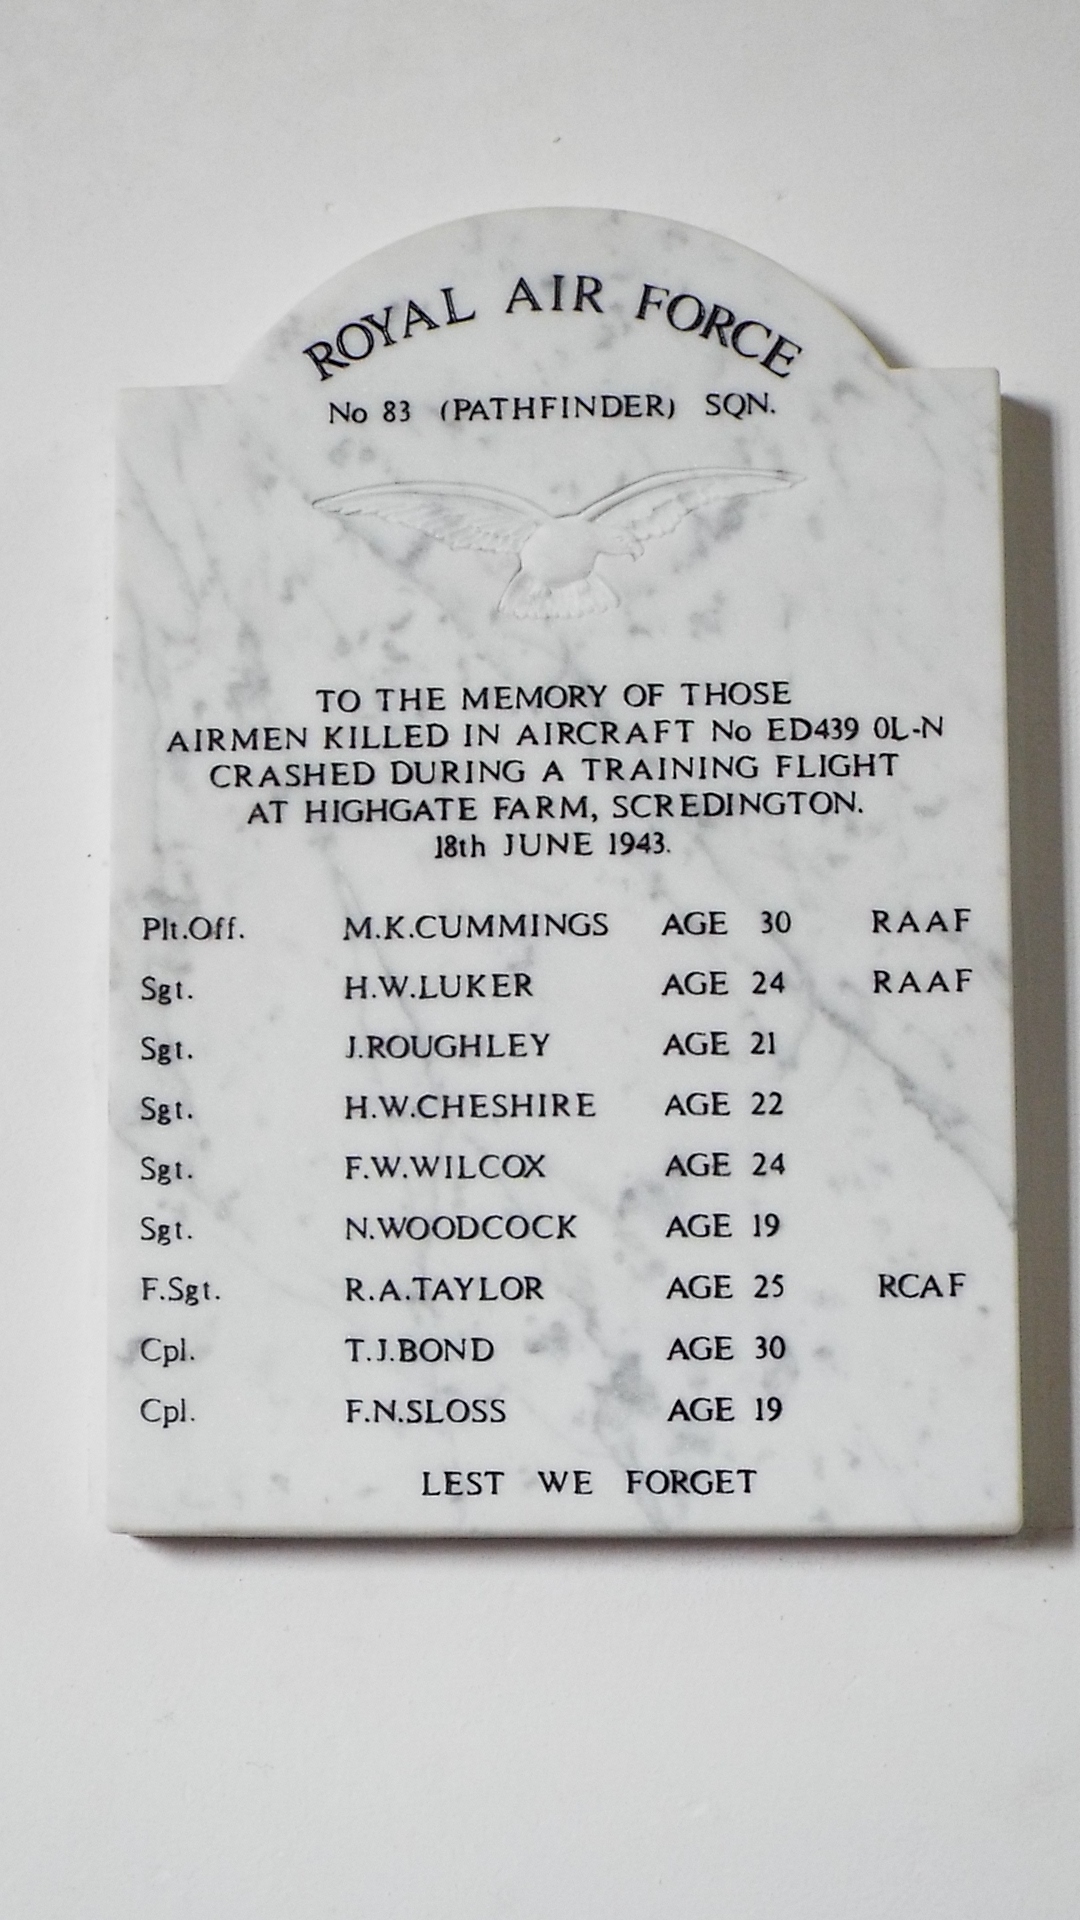 ROYAL AIR FORCE
No 83 (PATHFINDER) SQN.
TO THE MEMORY OF THOSE
AIRMEN KILLED IN AIRCRAFT No ED439 OL-N
CRASHED DURING A TRAINING FLIGHT
AT HIGHGATE FARM, SCREDINGTON.
18th JUNE 1943.
Plt.Off. M.K.CUMMINGS AGE 30 RAAF
Sgt. H.W.LUKER AGE 24 RAAF
Sgt. J.ROUGHLEY AGE 21
Sgt. H.W.CHESHIRE AGE 22
Sgt. F.W.WILCOX AGE 24
Sgt. N.WOODCOCK AGE 19
F.Sgt. R.A.TAYLOR AGE 25 RCAF
Cpl. T.J.BOND AGE 30
Cpl. F.N.SLOSS AGE 19
LEST WE FORGET